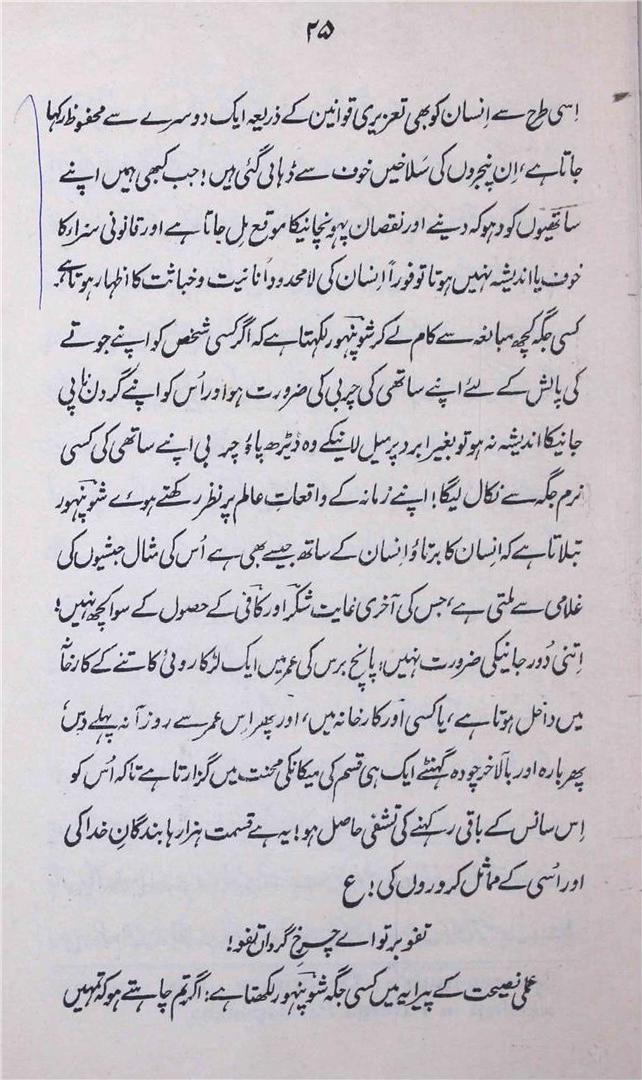 ۲۵
اِسی طرح سے اِنسان کو بھی تعزیری قوانین کے ذریعہ ایک دوسرے سے محفوظ رکہا
جاتا ہے، اِن پنجروں کی سَلاخیں خوف سے ڈہالی گئی ہیں! جب کبھی ہمیں اپنے
ساتھیوں کو دہوکہ دینے اور نقصان پہونچانیکا موقع مِل جاتا ہے اور قانونی سزا کا
خوف یا اندیشہ نہیں ہوتا تو فوراً اِنسان کی لامحدود اَنانیت و خباثت کا اظہار ہوتا ہے۔
کسی جگہ کچھ مبالغہ سے کام لے کر شوپنہور لکہتا ہے کہ اگر کسی شخص کو اپنے جوتے
کی پالش کے لئے اپنے ساتھی کی چربی کی ضرورت ہو اور اُس کو اپنے گردن ناپی
جانیکا اندیشہ نہ ہو تو بغیر ابرو پر میل لانیکے وہ ڈیڑھ پاؤ چربی اپنے ساتھی کی کسی
نرم جگہ سے نکال لیگا! اپنے زمانہ کے واقعاتِ عالم پر نظر رکھتے ہوئے شوپنہور
بتلاتا ہے کہ اِنسان کا برتاؤ اِنسان کے ساتھ جیسے بھی ہے اُس کی مثال حبشیوں کی
غلامی سے ملتی ہے، جس کی آخری غایت شکّر اور کافی کے حصول کے سوا کچھ نہیں!
اِتنی دُور جانیکی ضرورت نہیں: پانچ برس کی عمر میں ایک لڑکا روئی کاتنے کے کارخانہ
میں داخل ہوتا ہے، یا کسی اور کارخانہ میں، اور پھر اِس عمر سے روز آنہ پہلے دس،
پھر بارہ اور بالآخر چودہ گہنٹے ایک ہی قسم کی میکانکی محنت میں گزارتا ہے تاکہ اُس کو
اِس سانس کے باقی رکہنے کی تشفی حاصل ہو! یہ ہے قسمت ہزارہا بندگانِ خدا کی
اور اسُی کے مماثل کروروں کی! ع
تفو بر تو اے چرخِ گرداں تفو!
عملی نصیحت کے پیرایہ میں کسی جگہ شوپنہور لکھتا ہے: اگر تم چاہتے ہو کہ تمہیں